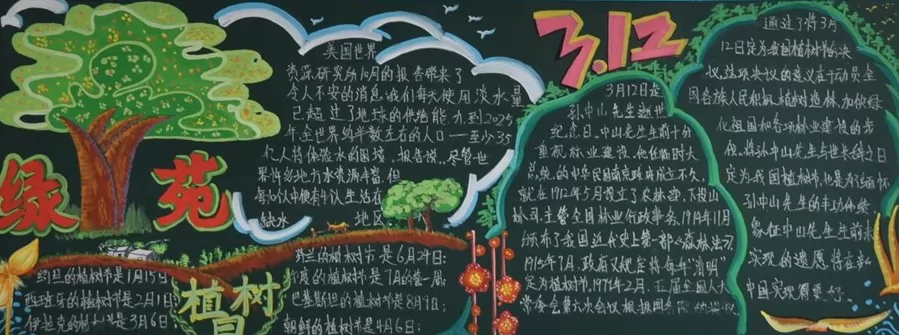 绿苑
美国世界
资源研究所10月的报告带来了
令人不安的消息,我们每天使用淡水量
已超过了地球的供给能力,到2025
年全世界约半数左右的人口——至少35
亿人将体验水的困境,报告说,尽管世
界许多地方水资源丰富,但
生活在
缺水 地区
约旦的植树节是1月15日;
西班牙的植树节是2月1日;
伊拉克的植树节是3月6日;
植树
的植树节是6月24日;
的植树节是7月的第一周;
巴基斯坦的植树节是8月9日;
朝鲜的植树节是4月6日;
3.12
3月12日是
孙中山先生逝世
纪念日。中山先生生前十分
重视林业建设。他任临时大
总统的中华民国南京政府成立不久,
就在1912年5月设立了农林部,下设山
林司,主管全国林业行政事务,1914年11月
颁布了我国近代史上第一部《森林法》,
1915年7月,政府又规定将每年"清明"
定为植树节。1979年2月,五届全国人大
常委会第六次会议根据国务院的提议
通过了将3月
12日定为我国植树节的决
议,这项决议的意义在于动员全
国各族人民积极植树造林,加快绿
化祖国和各项林业建设的步
伐。将孙中山先生与世长辞之日
定为我国植树节,也是为了缅怀
孙中山先生的丰功伟绩
象征中山先生生前未
实现的遗愿将在新
中国实现得更好。